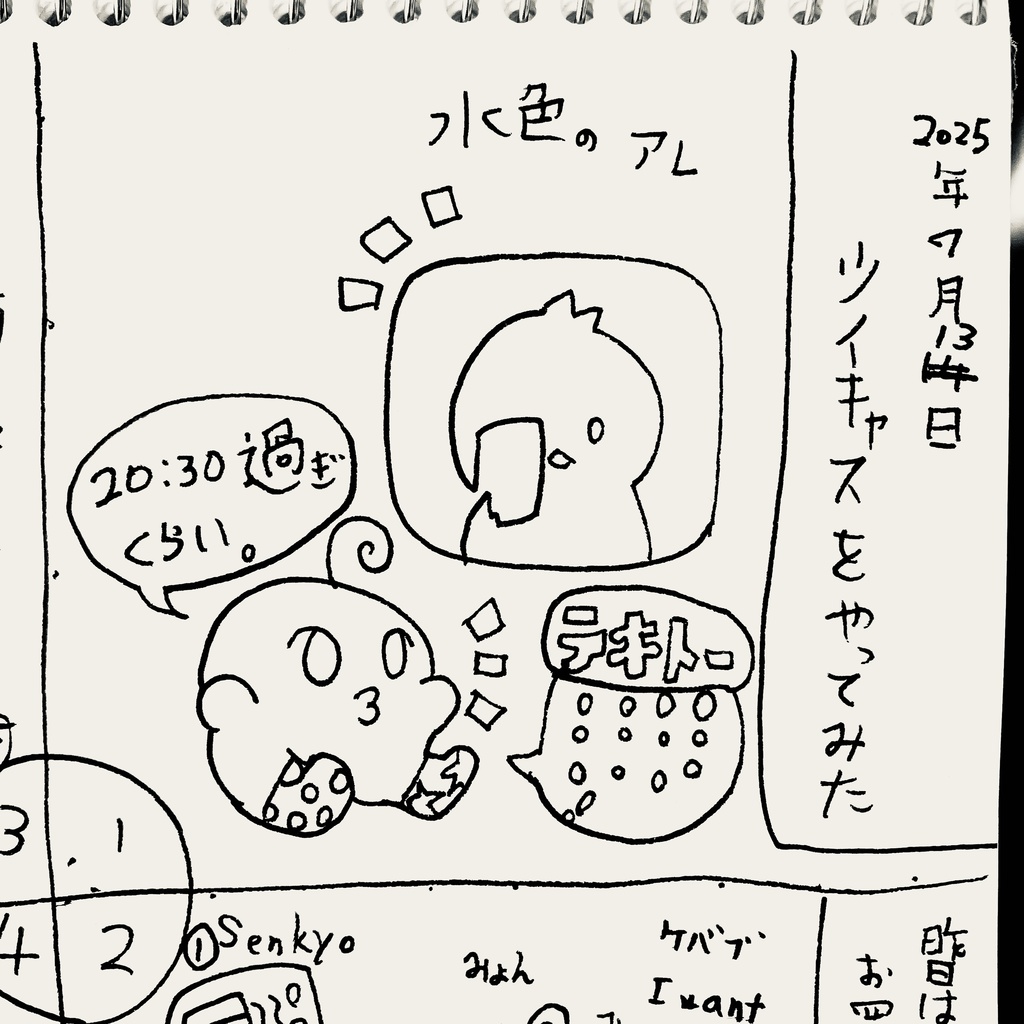 2025年7月13日
ツイキャスをやってみた
水色の アレ
20:30過ぎ
くらい。
テキトー
3 1
4 2
昨日は
お四
ケバブ
I want
みょん
①Senkyo